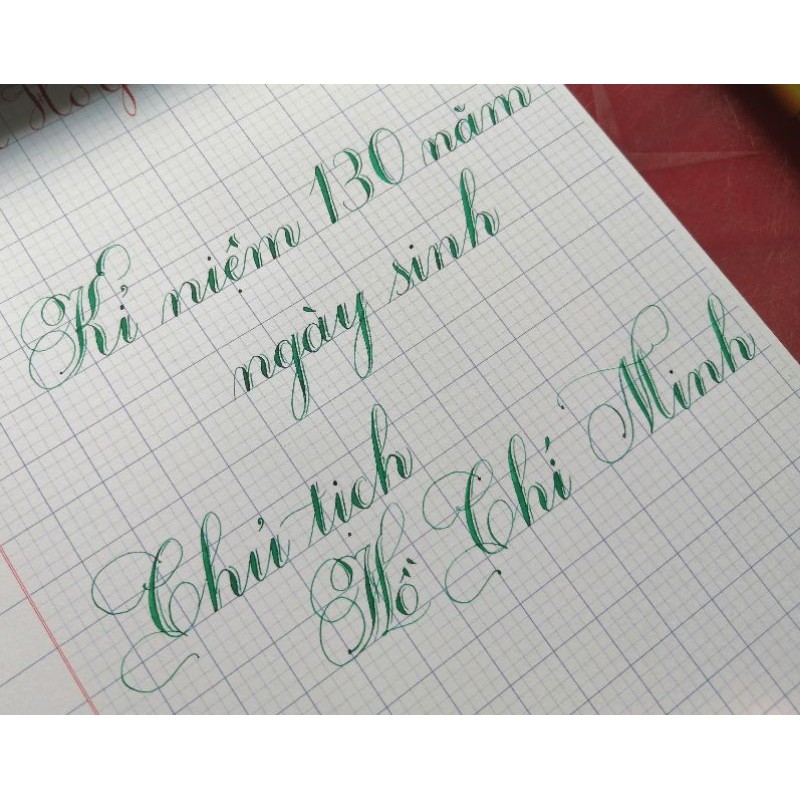 Kỉ niệm 130 năm
ngày sinh
Chủ tịch
Hồ Chí Minh